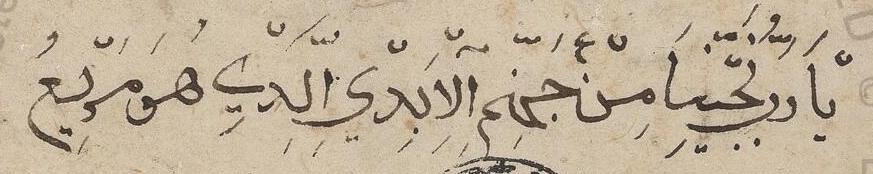 يَا رَبُّ نَجِّينَا مِنْ جَهَنَّمِ الْاَبَدِّي الَّذِي هُوَ مَرِيعُ